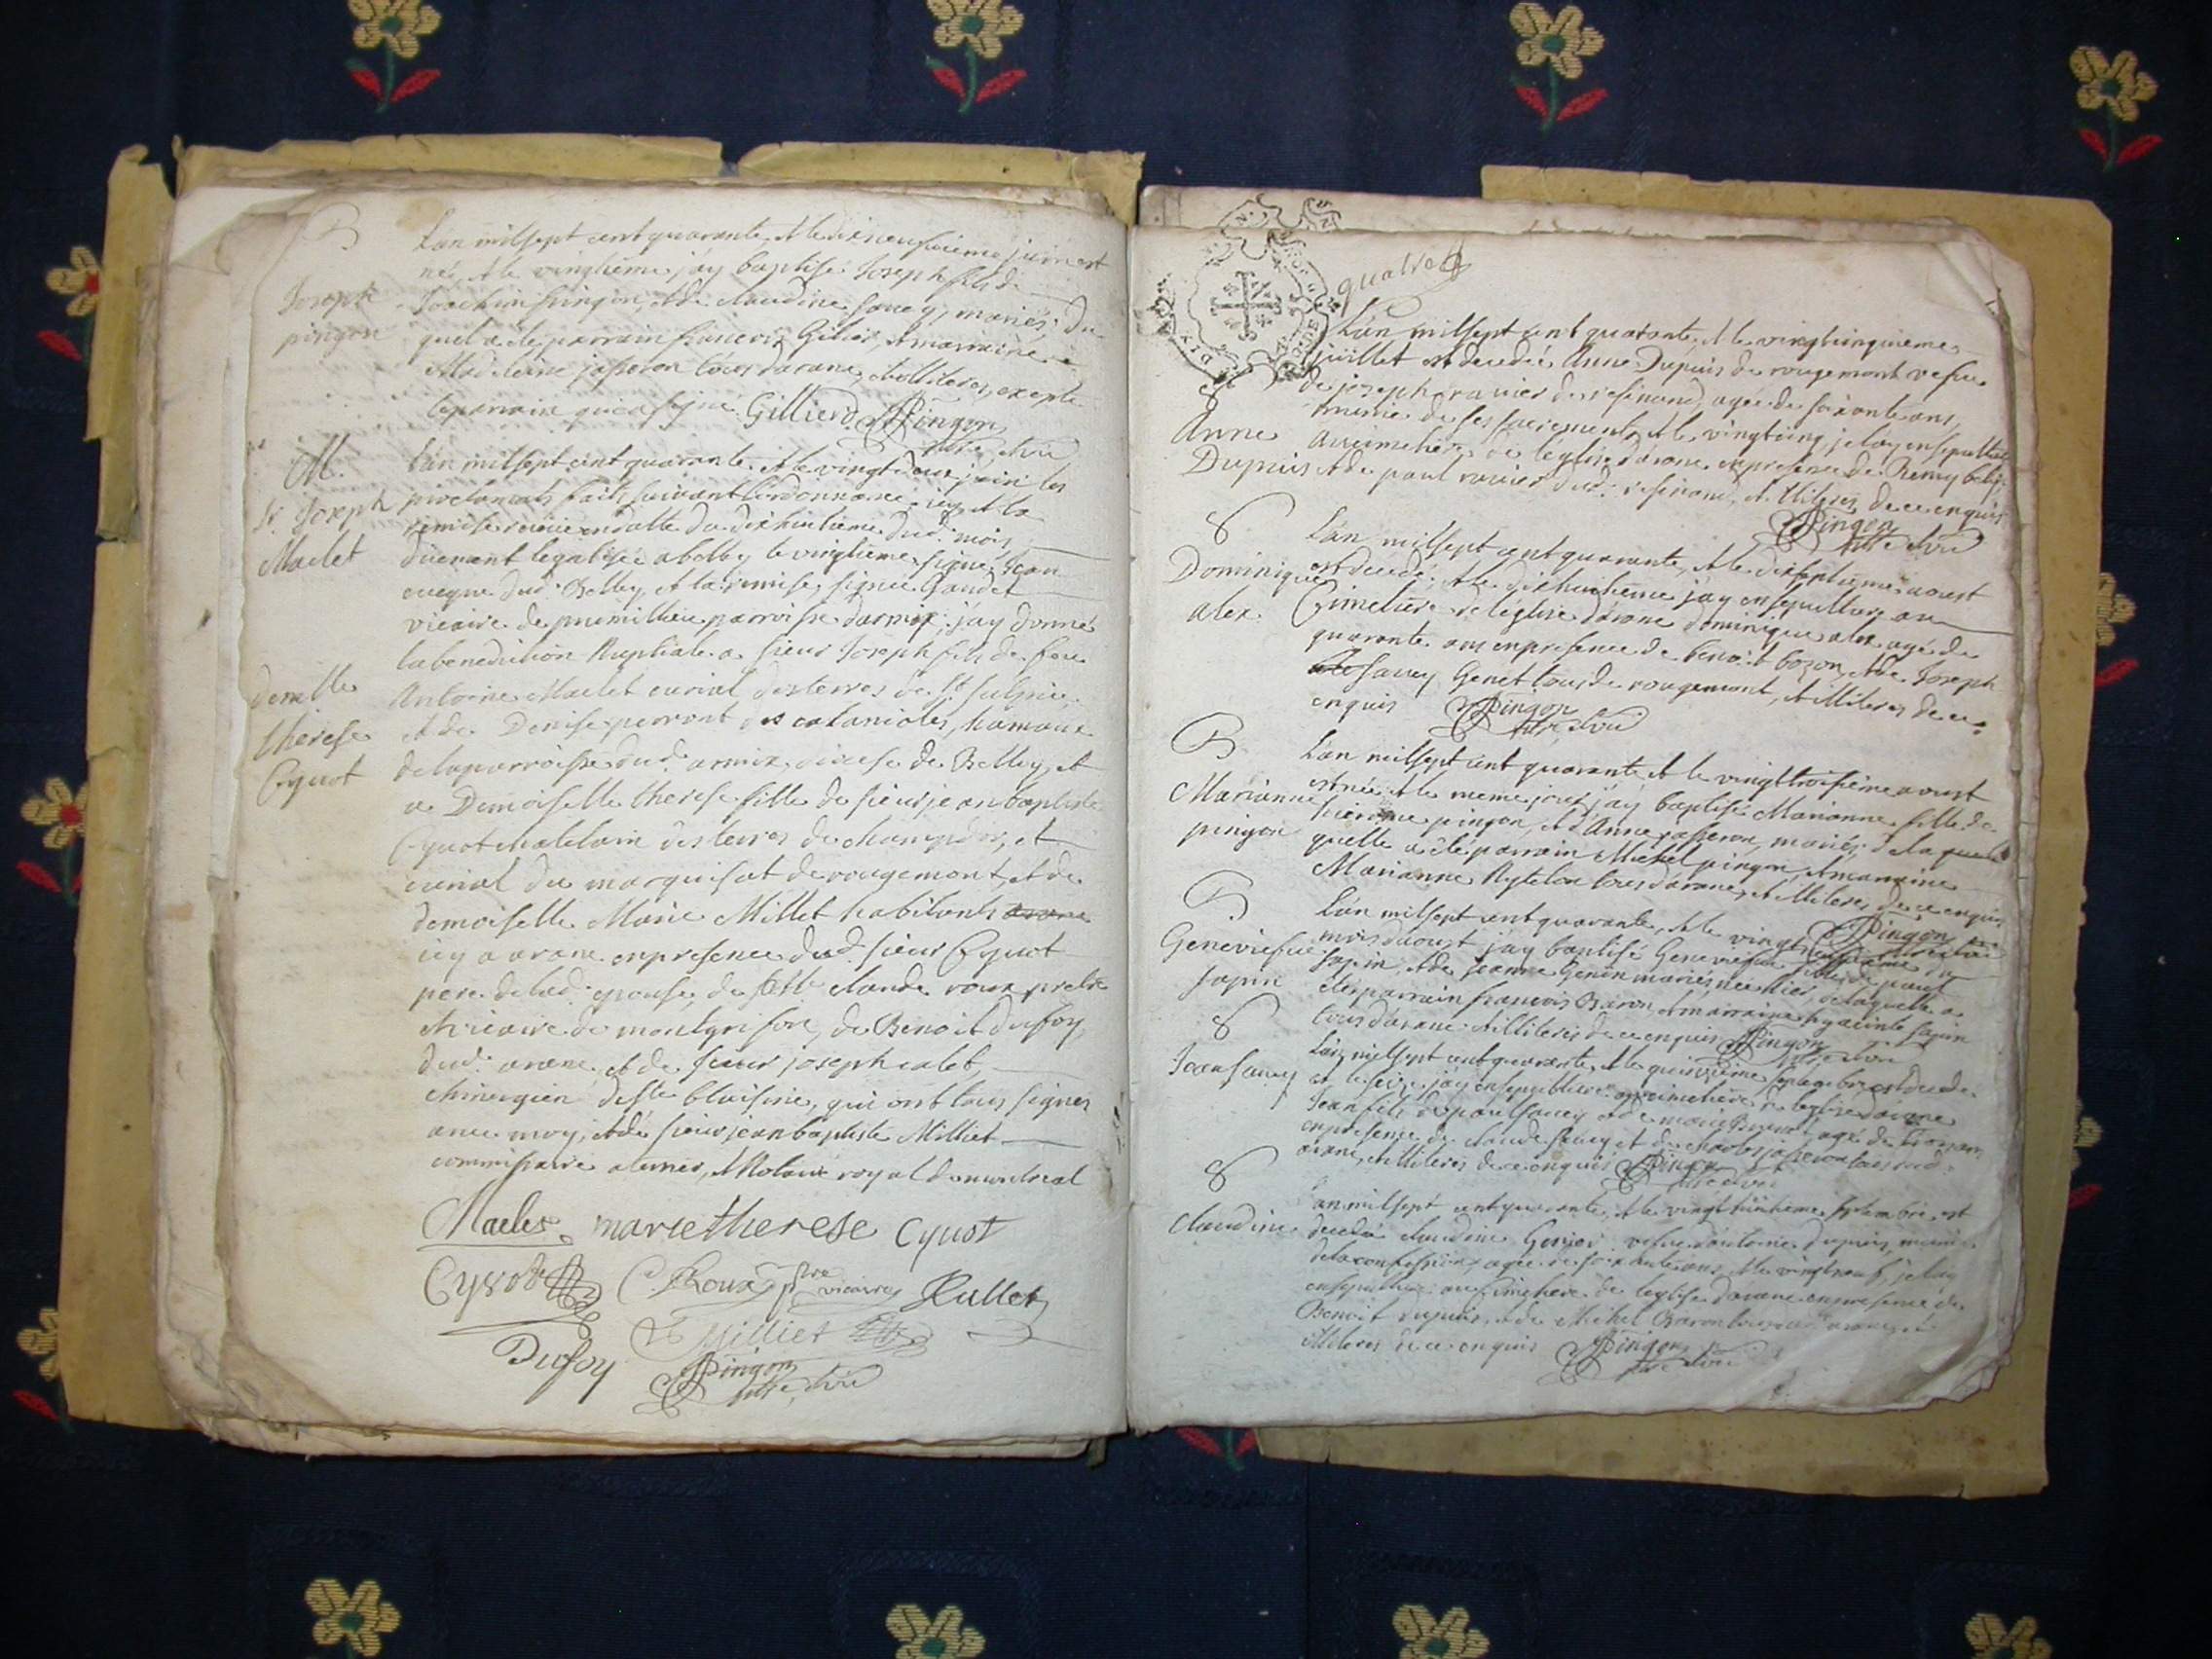 B
Joseph
pingon
L'an milsept cent quarante, et le dixneufvieme juin est
né, et le vingtiéme j'ay baptisé Joseph fils de
Joachim pingon, et de claudine savey, mariés, du
quel a eté parrain francois Gilier, et marraine
Madeleine josseron tous darane, et illiteres, excepté
le parrain qui a signé. Gillierd Pingon
ptre, curé
M.
Sr. Joseph
Maclet
demlle
therese
Cyvot
L'an milsept cent quarante et le vingt deux juin les
proclamats faits suivant l'ordonnance icy, et la
remise reçüe en datte du dixhuitieme dud. mois
duement legalisée a belley le vingtieme, signé Jean
eveque dud. Belley, et la remise, signée Gaudet
vicaire de premillieu parroisse darmix, j'ay donné
la benediction Nuptiale a sieur Joseph fils de feu
Antoine Maclet curial des terres de St. Sulpice,
et de Denise perront des catanioles, hamaux
de la parroisse dud. armix, diocese de Belley, et
a Demoiselle therese fille de sieur jean baptiste
Cyvot chatelain des terres de champdor, et
curial du marquisat de rougemont, et de
demoiselle Marie Millet habitants
icy a arane en presence dud. sieur Cyvot
pere de lad. epouse, de Mre claude roux pretre
et vicaire de montgrifon, de Benoit Dufoy
dud. arane et de sieur joseph calet,
chirurgien de ste blaisine, qui ont tous signés
avec moy, et de sieur jean baptiste Milliet
commissaire a terrier, et Notaire royal de montreal
Maclet marie therese Cyvot
Cyvot C. Roux ptre vicaire Rullet
Milliet
Dufoy Pingon
ptre, curé
quatre
8
Anne
Dupuis
L'an milsept cent quarante, et le vingtcinquieme
juillet est decedée Anne Dupuis de rougemont vefve
de joseph ravier de resinand, agée de soixante ans,
munie de ses sacrements, et le vingtcinq je l'ay ensepulturé
au cimetiere de l'eglise darane en presence de Remy
et de paul ravier dud. resinand, et illiteres de ce enquis
Pingon
ptre, curé
8
Dominique
alex
L'an milsept cent quarante, et le dixseptieme aoust
est decedé, et le dixhuitieme j'ay ensepulturé au
Cimetiere de l'eglise darane dominique alex agé de
quarante ans en presence de benoit bozon, et de Joseph
savey Genet tous de rougemont, et illiteres de ce
enquis Pingon
ptre, curé
B
Marianne
pingon
L'an milsept cent quarante et le vingttroisieme aoust
est née, et le meme jour j'ay baptisé Marianne fille de
hierome pingon, et d'Anne josseron, mariés, de la
quelle a eté parrain Michel pingon, et marraine
Marianne tous darane, et illiteres de ce enquis
Pingon ptre curé
B
Geneviefve
sapin
L'an milsept cent quarante, et le vingt neufvieme du
mois daoust j'ay baptisé Geneviefve fille de paul
sapin, et de jeanne Genin mariés, née hier, de laquelle a
eté parrain francois Baron, et marraine hyacinte sapin
tous darane et illiteres de ce enquis Pingon
ptre, curé
8
Jean savey
L'an milsept cent quarante, et le quinzieme septembre est decedé
et le seize j'ay ensepulturé au cimetiere de l'eglise darane
Jean fils de paul savey et de marie agé de
en presence de claude savey et de charles josseron tous dud.
arane, et illiteres de ce enquis Pingon
ptre, curé
8
claudine
L'an milsept cent quarante, et le vingthuitieme septembre est
decedée claudine vefve d'antoine dupuis, munie
de la confession, agée de soixante ans, et le vingtneuf je l'ay
ensepulturé au Cimetiere de l'eglise darane en presence de
Benoit dupuis, et de Michel Baron tous dud. arane, et
illiteres de ce enquis Pingon
ptre, curé